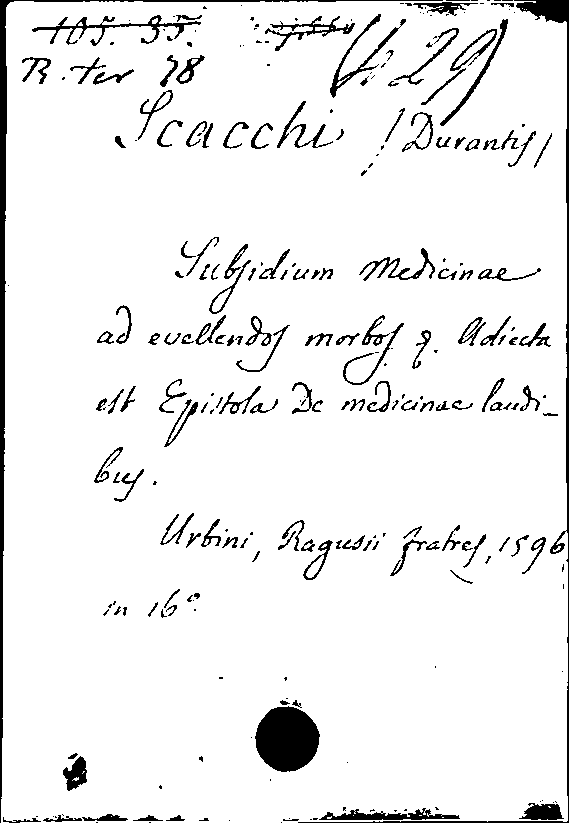 105. 35.
R. ter 78 (429)
Scacchi /Durantis/
Subsidium Medicinae
ad evellendos morbos &. Adiecta
est Epistola De medicinae laudi-
bus.
Urbini, Ragusii fratres, 1596
in 16°